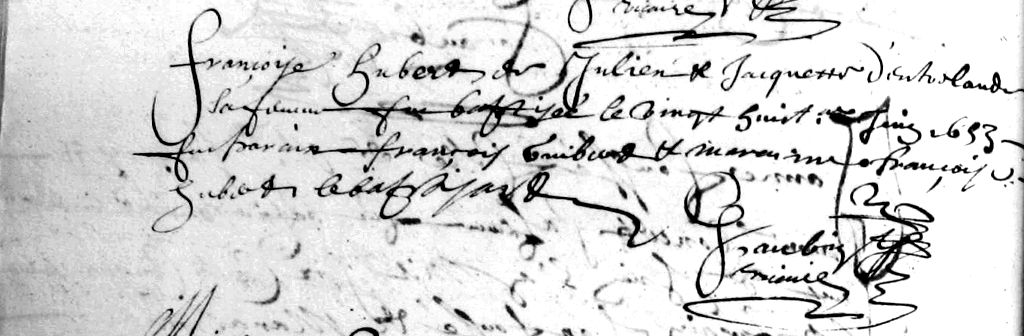 vicaire
françoise hubert de Julien & Jacquette d'entrelande
sa femme fut baptisée le vingt huict Juin 1653
fut parain françois huberd & maraine françoise
hubert lebaptisant
vicaire